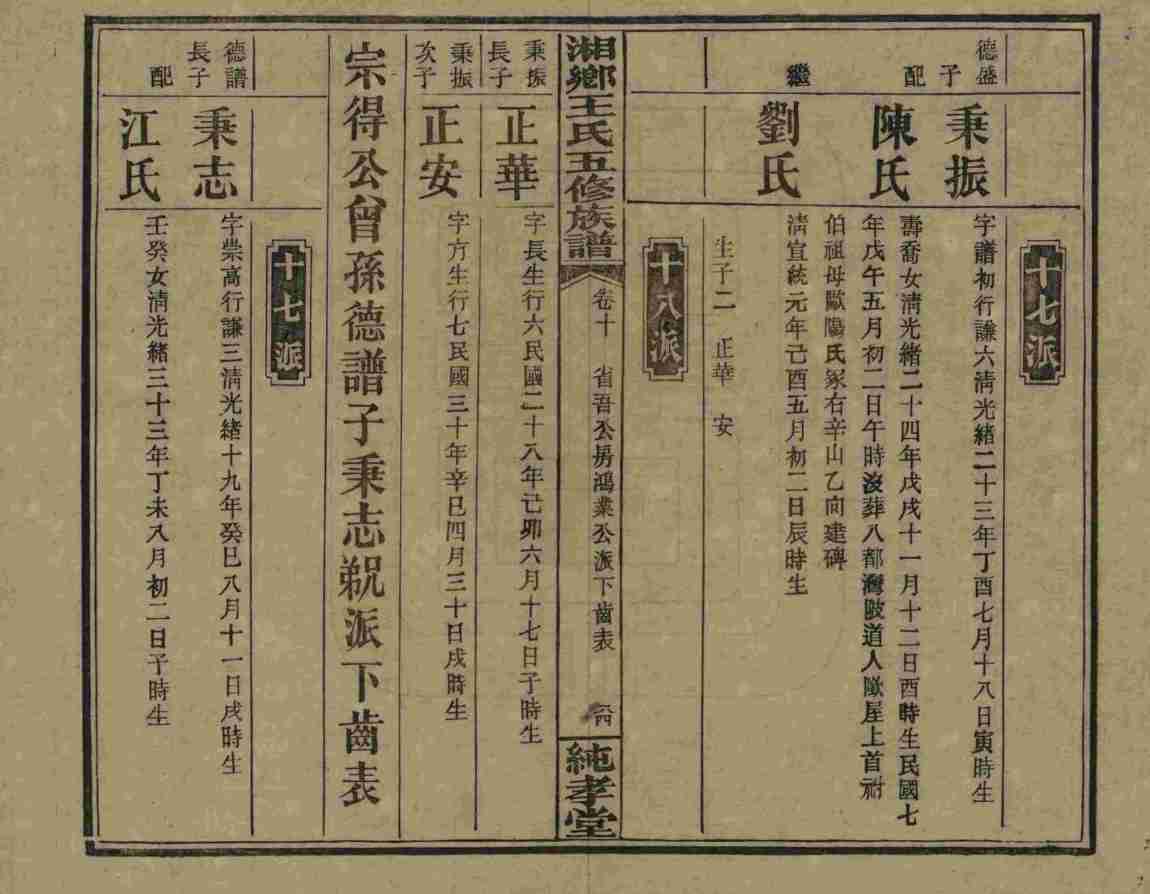 十七派
德盛子
秉振
字譜初行謙六清光緒二十三年丁酉七月十八日寅時生
配
陳氏
壽喬女清光緒二十四年戊戌十一月十二日酉時生民國七
年戊午五月初二日午時沒葬八都灣陂道人歐屋上首祔
伯祖母歐陽氏冢右辛山乙向建碑
繼
劉氏
清宣統元年己酉五月初二日辰時生
生子二 正華 安
十八派
湘鄉王氏五修族譜
卷十 省吾公房鴻業公派下齒表
純孝堂
秉振長子
正華
字長生行六民國二十八年己卯六月十七日子時生
秉振次子
正安
字方生行七民國三十年辛巳四月三十日戌時生
宗得公曾孫德譜子秉志派下齒表
十七派
德譜長子
秉志
字崇高行謙三清光緒十九年癸巳八月十一日戌時生
配
江氏
壬癸女清光緒三十三年丁未八月初二日子時生